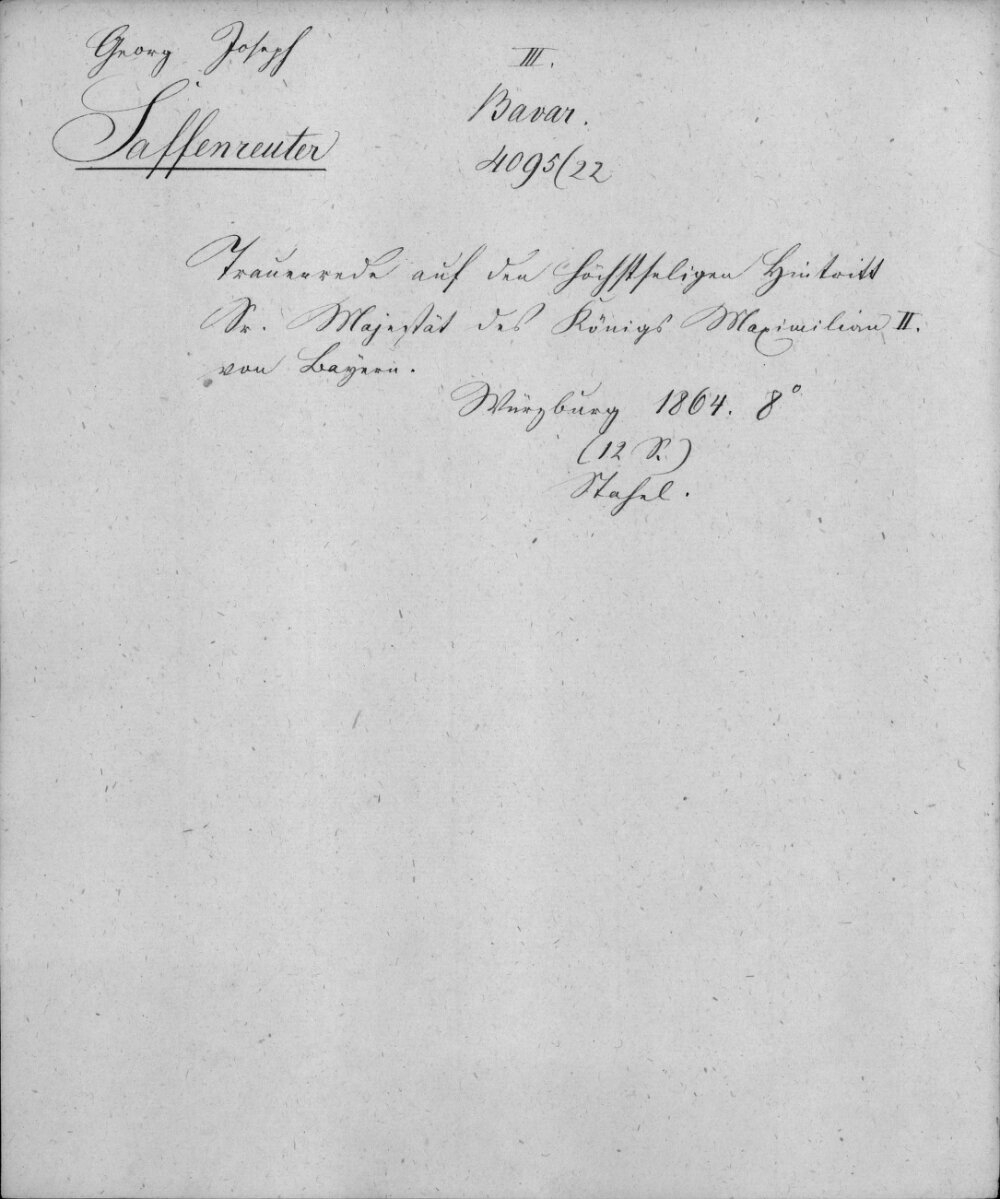 Georg Joseph
Saffenreuter
III.
Bavar.
4095(22
Trauerrede auf den höchstseligen Hintritt
Sr. Majestät des Königs Maximilian II.
von Bayern.
Würzburg 1864. 8°
(12 S.)
Stahel.